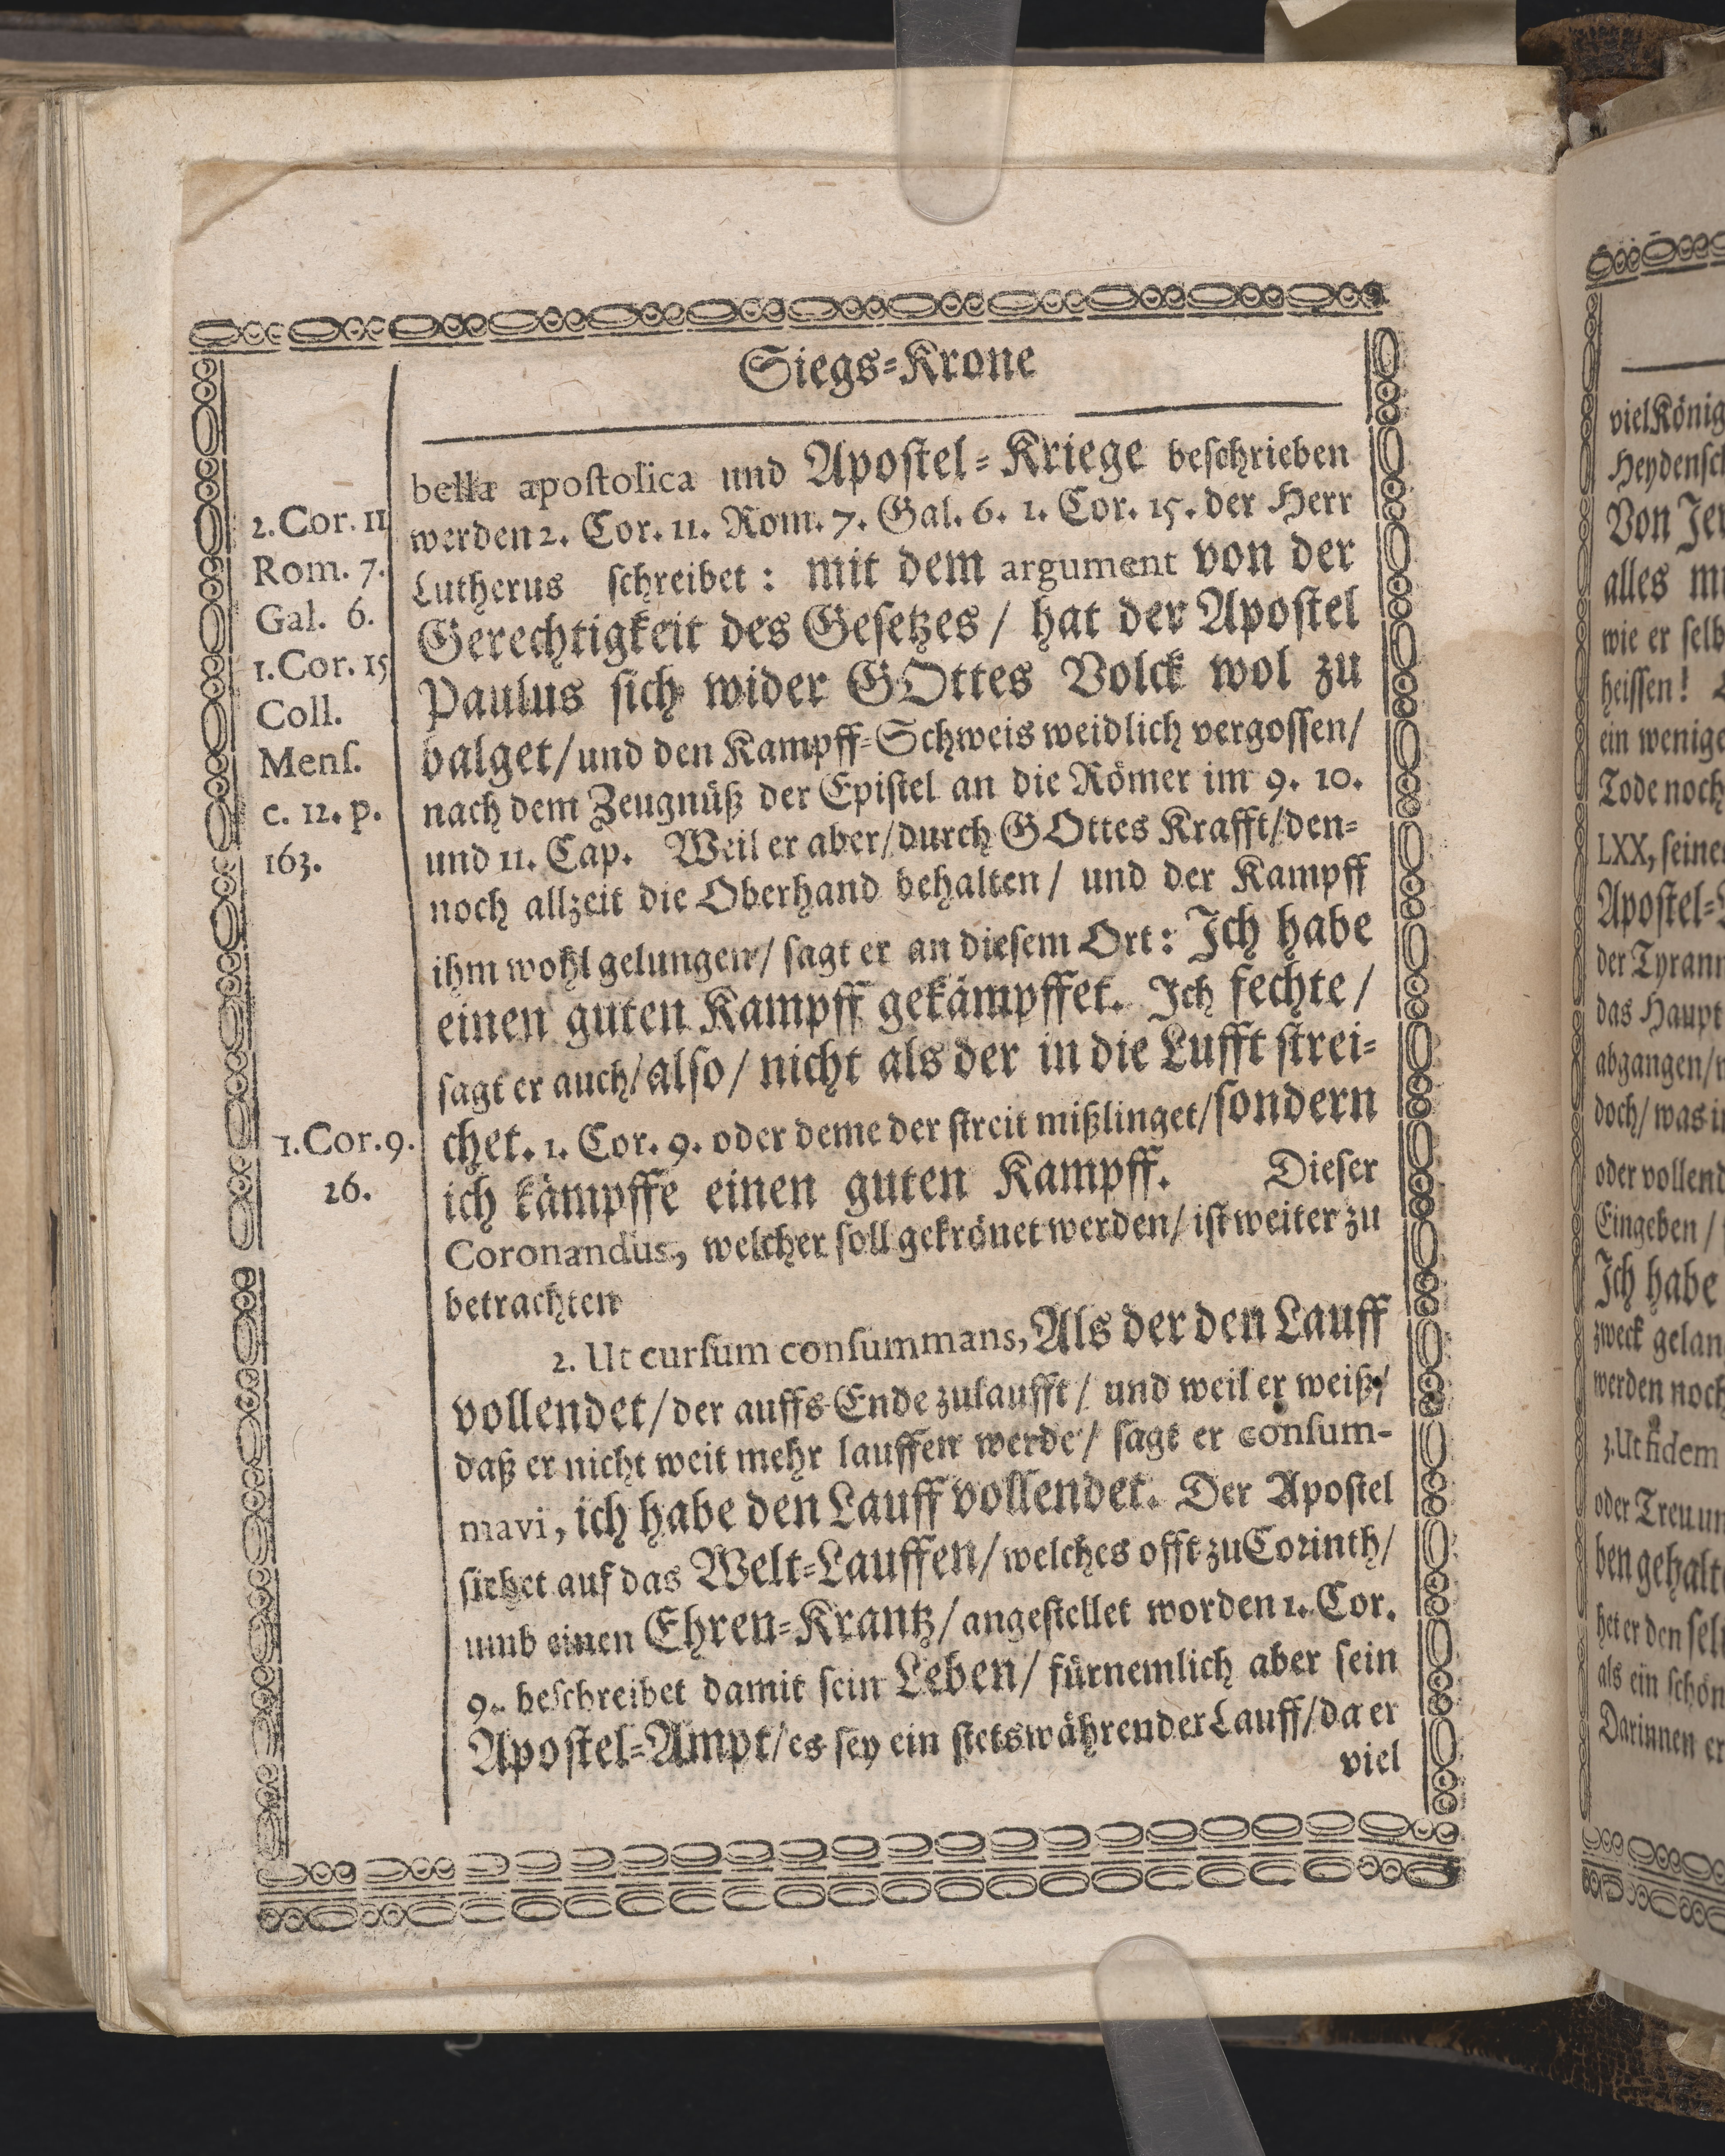 Siegs-Krone
bella apostolica und Apostel-Kriege beschrieben
werden 2. Cor. 11. Rom. 7. Gal. 6. 1. Cor. 15. der Herr
Lutherus schreibet: mit dem argument von der
Gerechtigkeit des Gesetzes / hat der Apostel
Paulus sich wider GOttes Volck wol zu
balget / und den Kampff-Schweis weidlich vergossen /
nach dem Zeugnüß der Epistel an die Römer im 9. 10.
und 11. Cap. Weil er aber / durch GOttes Krafft / den-
noch allzeit die Oberhand behalten / und der Kampff
ihm wohl gelungen / sagt er an diesem Ort: Ich habe
einen guten Kampff gekämpffet. Ich fechte /
sagt er auch / also / nicht als der in die Lufft strei-
chet. 1. Cor. 9. oder deme der streit mißlinget / sondern
ich kämpffe einen guten Kampff. Dieser
Coronandus, welcher soll gekrönet werden / ist weiter zu
betrachten
2. Ut cursum consummans, Als der den Lauff
vollendet / der auffs Ende zulaufft / und weil er weiß /
daß er nicht weit mehr lauffen werde / sagt er consum-
mavi, ich habe den Lauff vollendet. Der Apostel
siehet auf das Welt-Lauffen / welches offt zu Corinth /
umb einen Ehren-Krantz / angestellet worden 1. Cor.
9. beschreibet damit sein Leben / fürnemlich aber sein
Apostel-Ampt / es sey ein stetswährender Lauff / da er
viel
2. Cor. 11
Rom. 7.
Gal. 6.
1. Cor. 15
Coll.
Mens.
c. 12. p.
163.
1. Cor. 9.
26.
viel König
Heydensch
Von Jer
alles mi
wie er selb
heissen!
ein wenige
Tode noch
LXX, seine
Apostel-
der Tyrann
das Haupt
abgangen /
doch / was i
oder vollend
Eingeben /
Ich habe
zweck gelan
werden noch
3. Ut fidem
oder Treu un
ben gehalt
het er den sel
als ein schön
Darinnen er